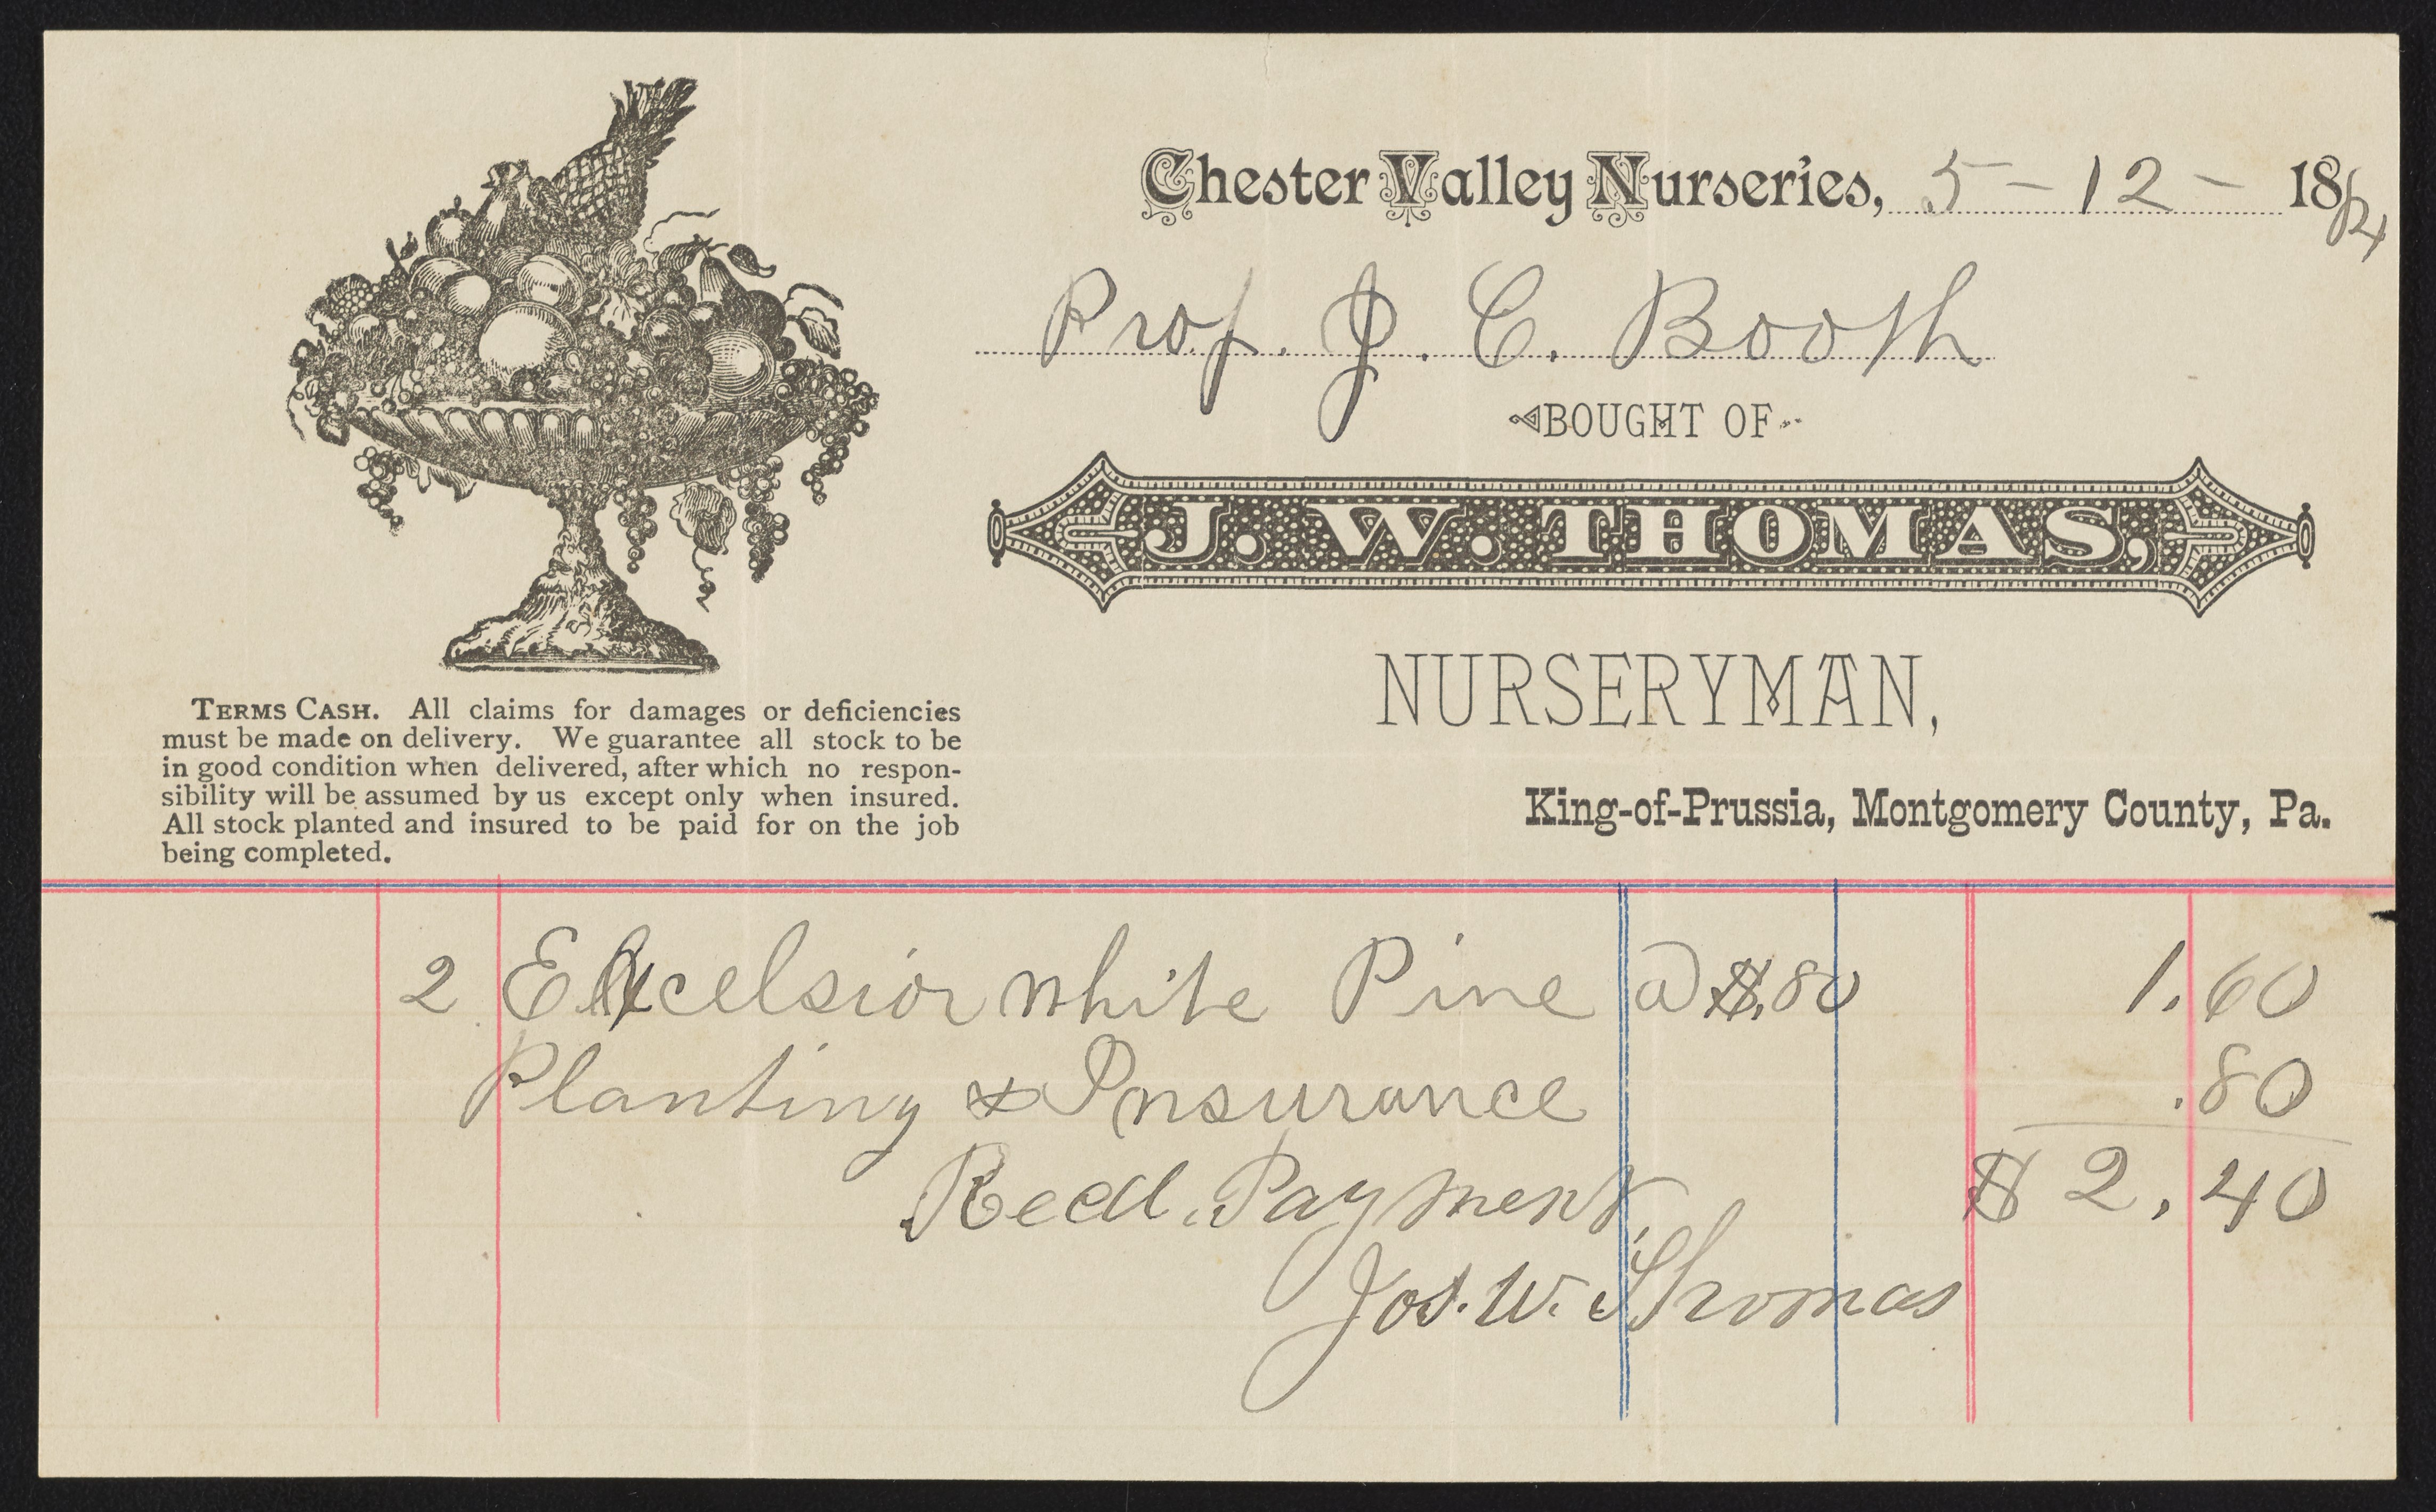 Chester Valley Nurseries, 5-12-1884
Prof. J. C. Booth
BOUGHT OF
J. W. THOMAS,
NURSERYMAN,
King-of-Prussia, Montgomery County, Pa.
TERMS CASH. All claims for damages or deficiencies
must be made on delivery. We guarantee all stock to be
in good condition when delivered, after which no respon-
sibility will be assumed by us except only when insured.
All stock planted and insured to be paid for on the job
being completed.
2 Excelsior white Pine @ $.80 1.60
Planting & Insurance .80
$2.40
Recd. Payment
Jos. W. Thomas